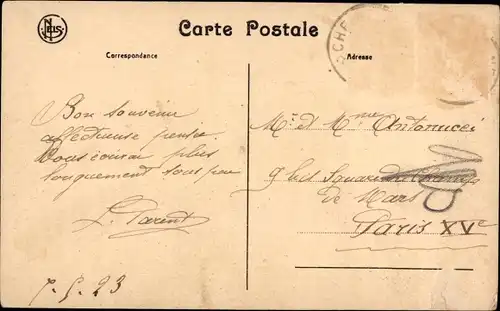 NELS
Carte Postale
Correspondance
Adresse
SCHE
Bon souvenir
affectueuse pensée.
Vous écrirai plus
longuement sous peu
L. Parent
7.5.23
Mr et Mme Antonucci
9 bis Square du Champ
de Mars
Paris XVe